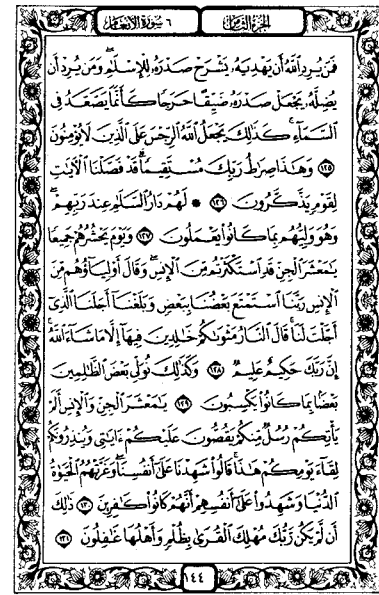 الجزء الثامن ٦ سورة الأنعام
فَمَن يُرِدِ ٱللَّهُ أَن يَهْدِيَهُۥ يَشْرَحْ صَدْرَهُۥ لِلْإِسْلَٰمِ ۖ وَمَن يُرِدْ أَن
يُضِلَّهُۥ يَجْعَلْ صَدْرَهُۥ ضَيِّقًا حَرَجًا كَأَنَّمَا يَصَّعَّدُ فِى
ٱلسَّمَآءِ ۚ كَذَٰلِكَ يَجْعَلُ ٱللَّهُ ٱلرِّجْسَ عَلَى ٱلَّذِينَ لَا يُؤْمِنُونَ
١٢٥ وَهَٰذَا صِرَٰطُ رَبِّكَ مُسْتَقِيمًا ۗ قَدْ فَصَّلْنَا ٱلْءَايَٰتِ
لِقَوْمٍ يَذَّكَّرُونَ ١٢٦ * لَهُمْ دَارُ ٱلسَّلَٰمِ عِندَ رَبِّهِمْ ۖ
وَهُوَ وَلِيُّهُم بِمَا كَانُوا۟ يَعْمَلُونَ ١٢٧ وَيَوْمَ يَحْشُرُهُمْ جَمِيعًا
يَٰمَعْشَرَ ٱلْجِنِّ قَدِ ٱسْتَكْثَرْتُم مِّنَ ٱلْإِنسِ ۖ وَقَالَ أَوْلِيَآؤُهُم مِّنَ
ٱلْإِنسِ رَبَّنَا ٱسْتَمْتَعَ بَعْضُنَا بِبَعْضٍ وَبَلَغْنَآ أَجَلَنَا ٱلَّذِىٓ
أَجَّلْتَ لَنَا ۚ قَالَ ٱلنَّارُ مَثْوَىٰكُمْ خَٰلِدِينَ فِيهَآ إِلَّا مَا شَآءَ ٱللَّهُ ۗ
إِنَّ رَبَّكَ حَكِيمٌ عَلِيمٌ ١٢٨ وَكَذَٰلِكَ نُوَلِّى بَعْضَ ٱلظَّٰلِمِينَ
بَعْضًۢا بِمَا كَانُوا۟ يَكْسِبُونَ ١٢٩ يَٰمَعْشَرَ ٱلْجِنِّ وَٱلْإِنسِ أَلَمْ
يَأْتِكُمْ رُسُلٌ مِّنكُمْ يَقُصُّونَ عَلَيْكُمْ ءَايَٰتِى وَيُنذِرُونَكُمْ
لِقَآءَ يَوْمِكُمْ هَٰذَا ۚ قَالُوا۟ شَهِدْنَا عَلَىٰٓ أَنفُسِنَا ۖ وَغَرَّتْهُمُ ٱلْحَيَوٰةُ
ٱلدُّنْيَا وَشَهِدُوا۟ عَلَىٰٓ أَنفُسِهِمْ أَنَّهُمْ كَانُوا۟ كَٰفِرِينَ ١٣٠ ذَٰلِكَ
أَن لَّمْ يَكُن رَّبُّكَ مُهْلِكَ ٱلْقُرَىٰ بِظُلْمٍ وَأَهْلُهَا غَٰفِلُونَ ١٣١
١٤٤